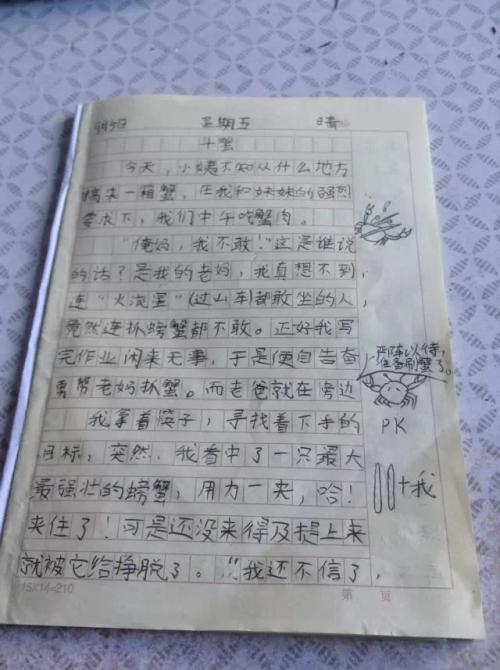 9月9日 星期五 晴
斗蟹
今天，小姨不知从什么地方
搞来一箱蟹，在我和妹妹的强烈
要求下，我们中午吃蟹肉。
“俺妈，我不敢！”这是谁说
的话？是我的老妈，我真想不到，
连“火流星”(过山车)都敢坐的人，
竟然连抓螃蟹都不敢。正好我写
完作业闲来无事，于是便自告奋
勇帮老妈抓蟹。而老爸就在旁边
我拿着筷子，寻找着下手的
目标，突然，我看中了一只最大
最强壮的螃蟹，用力一夹，哈！
夹住了！可是还没来得及提上来
就被它给挣脱了。“我还不信了，
严阵以待，
准备刷蟹了。
PK
+我
15X14=210
第 页